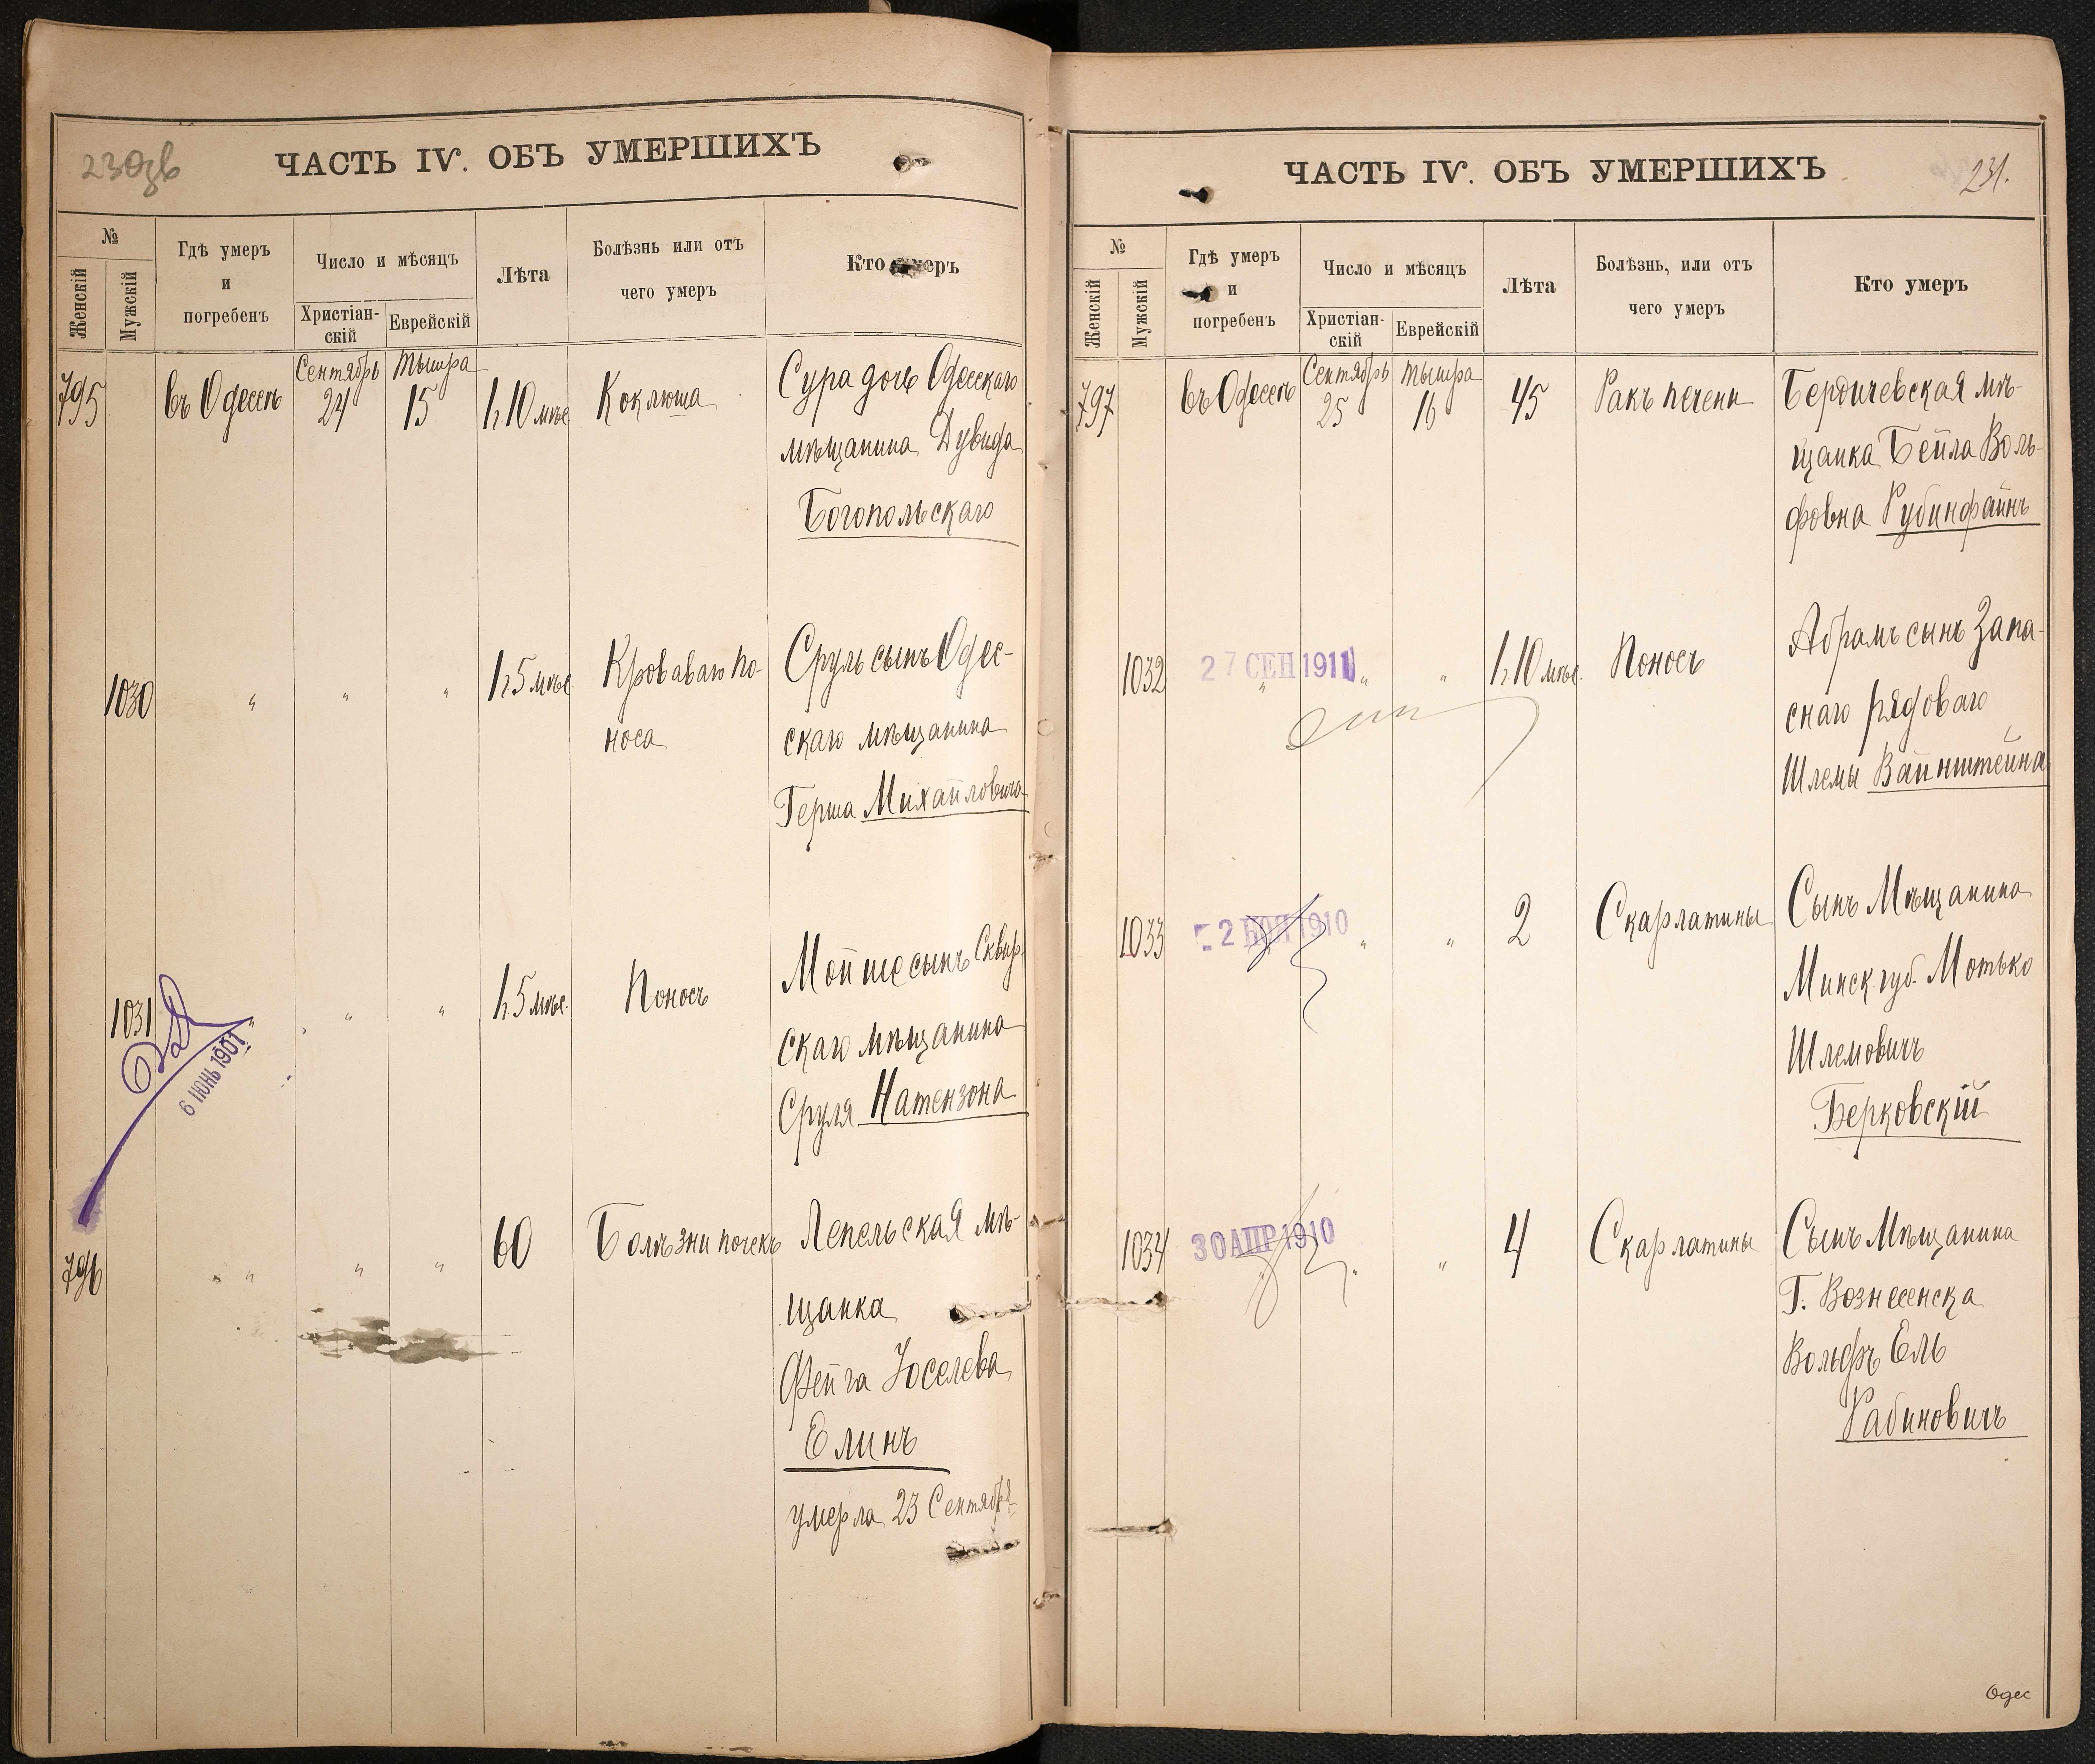 230зв
ЧАСТЬ IV. ОБЪ УМЕРШИХЪ
№
Женскій
Мужскій
Гдѣ умеръ
и
погребенъ
Число и мѣсяцъ
Христіан-
скій
Еврейскій
Лѣта
Болѣзнь или отъ
чего умеръ
Кто умеръ
795
въ Одессѣ
Сентябрь
24
Тышра
15
1 г. 10 мѣс.
Коклюша
Сура дочь Одесскаго
мѣщанина Дувида
Богопольскаго
1030
"
"
"
1 г. 5 мѣс.
Кроваваго по-
носа
Сруль сынъ Одес-
скаго мѣщанина
Герша Михайловича
1031
"
"
"
1 г. 5 мѣс.
Поносъ
Мойше сынъ Сквир-
скаго мѣщанина
Сруля Натензона
6 ІЮНЬ 1901
796
"
"
"
60
Болѣзни почекъ
Лепельская мѣ-
щанка
Фейга Іоселева
Елинъ
умерла 23 Сентября
ЧАСТЬ IV. ОБЪ УМЕРШИХЪ
231.
№
Женскій
Мужскій
Гдѣ умеръ
и
погребенъ
Число и мѣсяцъ
Христіан-
скій
Еврейскій
Лѣта
Болѣзнь, или отъ
чего умеръ
Кто умеръ
797
въ Одессѣ
Сентябрь
25
Тышра
16
45
Ракъ печени
Бердичевская мѣ-
щанка Бейла Воль-
фовна Рубинфайнъ
1032
27 СЕН 1911
"
"
"
1 г. 10 мѣс.
Поносъ
Абрамъ сынъ Запа-
снаго рядоваго
Шлемы Вайнштейна
1033
2 НОЯ 1910
"
"
2
Скарлатины
Сынъ Мѣщанина
Минск. губ. Мотько
Шлемовичъ
Берковскій
1034
30 АПР 1910
"
"
"
4
Скарлатины
Сынъ Мѣщанина
Г. Вознесенска
Вольфъ Ель
Рабиновичъ
Одес